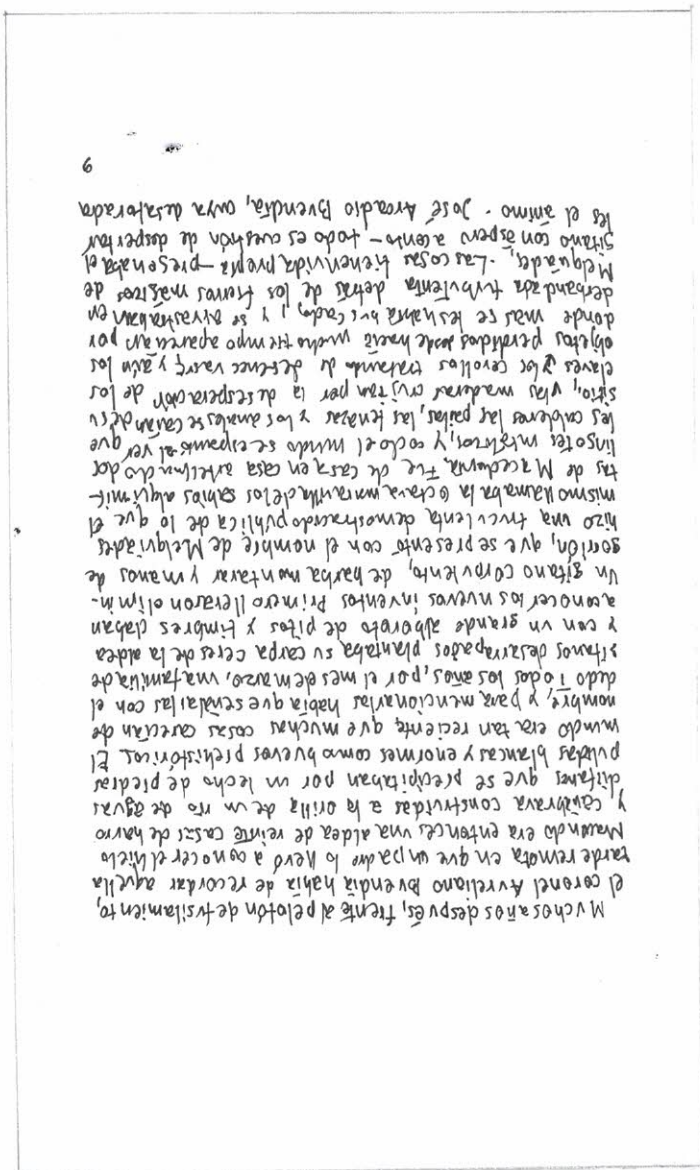 Muchos años después, frente al pelotón de fusilamiento,
el coronel Aureliano Buendía había de recordar aquella
tarde remota en que un padre lo llevó a conocer el hielo
Macondo era entonces una aldea de veinte casas de barro
y cañabrava construidas a la orilla de un río de aguas
diáfanas que se precipitaban por un lecho de piedras
pulidas blancas y enormes como huevos prehistóricos. El
mundo era tan reciente, que muchas cosas carecían de
nombre, y para mencionarlas había que señalarlas con el
dedo Todos los años, por el mes de marzo, una familia de
gitanos desarrapados plantaba su carpa cerca de la aldea
y con un grande alboroto de pitos y timbres daban
a conocer los nuevos inventos Primero llevaron el imín-
Un gitano corpulento, de barba montaraz y manos de
gorrión, que se presentó con el nombre de Melquíades
hizo una truculenta demostración pública de lo que él
mismo llamaba la octava maravilla de los sabios alquimis-
tas de Macedonia, Fue de casa en casa arrastrando dos
lingotes metálicos, y todo el mundo se espantó al ver que
los calderos las pailas, las tenazas y los anafes se caían de su
sitio, y las maderas crujían por la desesperación de los
clavos y los tornillos tratando de desenclavarse y aún los
objetos perdidos desde hacía mucho tiempo aparecían por
donde más se les había buscado, y se arrastraban en
desbandada turbulenta detrás de los fierros mágicos de
Melquíades, -Las cosas tienen vida propia -presenaba el
gitano con áspero acento- todo es cuestión de despertar
les el ánimo. José Arcadio Buendía, cuya desaforada
9